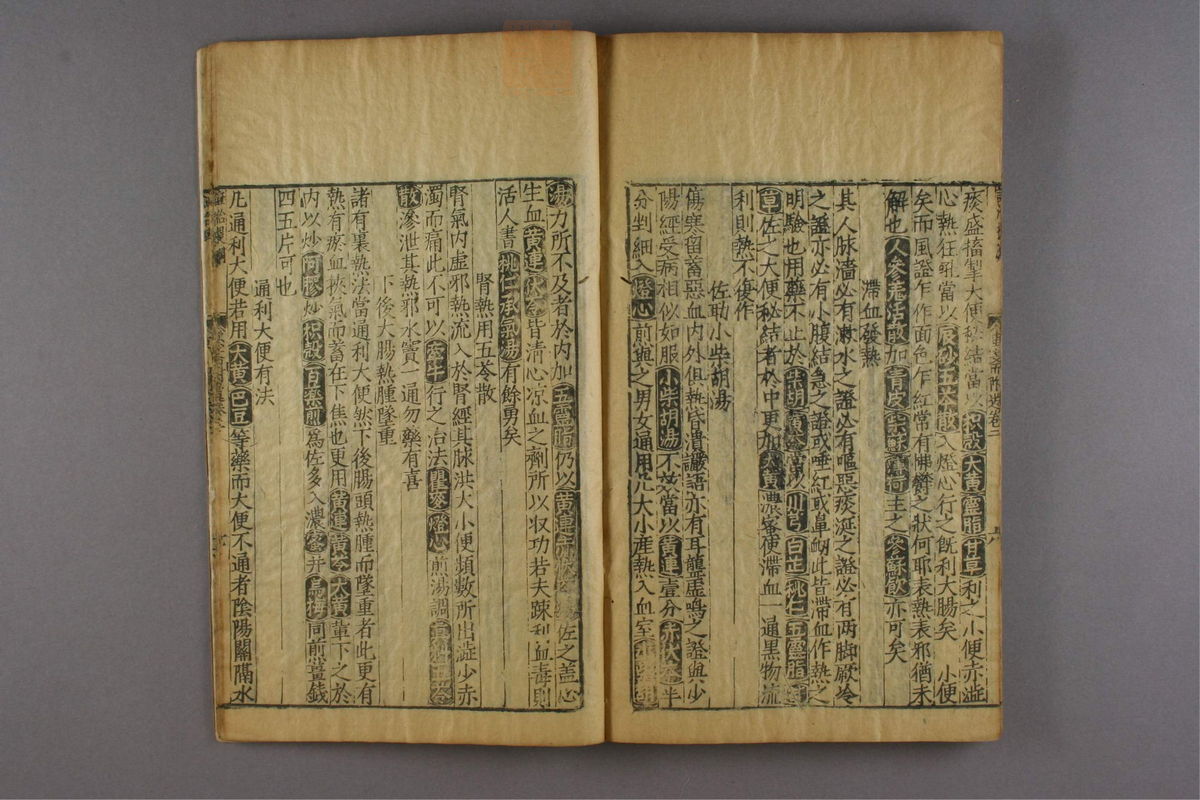 痰盛搐掣大便秘結當以枳殼大黃靈脂甘草利之小便赤澁
心熱狂䚷當以辰砂五苓散入燈心行之旣利大腸矣小便
矣而風證乍作面色乍紅常有怫欝之狀何耶表熱表邪猶未
解也人參羌活散加靑皮紫蘇薄荷主之參蘇飮亦可矣
滯血發熱
其人脉濇必有漱水之證必有嘔惡痰涎之證必有两脚厥冷
之證亦必有小腹結急之證或唾紅或鼻衂此皆滯血作熱之
明驗也用藥不止於柴胡黃芩當以川芎白芷桃仁五靈脂甘
草佐之大便秘結者於中更加大黃濃蜜使滯血一通黑物流
利則熱不復作
佐助小柴胡湯
傷寒留蓄惡血內外俱熱昏潰讝語亦有耳聾虛鳴之證與少
陽經受病相似如服小柴胡湯不效當以黃連壹分赤伏苓半
分剉細入燈心煎與之男女通用凡大小產熱入血室小柴胡
湯力所不及者於內加五靈脂仍以黃連赤茯苓佐之盖心
生血黃連伏苓皆清心凉血之劑所以収功若夫踈利血毒則
活人書桃仁承氣湯有餘勇矣
腎熱用五苓散
腎氣內虛邪熱流入於腎經其脉洪大小便頻數所出澁少赤
濁而痛此不可以牽牛行之治法瞿麥燈心煎湯調五苓
散滲泄其熱邪水竇一通勿藥有喜
下後大腸熱腫墜重
諸有裏熱法當通利大便然下後腸頭熱腫而墜重者此更有
熱有瘀血挾氣而蓄在下焦也更用黃連黃芩大黃輩下之於
內以炒阿膠炒枳殼百藥煎爲佐多入濃蜜并烏梅同前薑錢
四五片可也
通利大便有法
凡通利大便若用大黃巴豆等藥而大便不通者陰陽關隔水